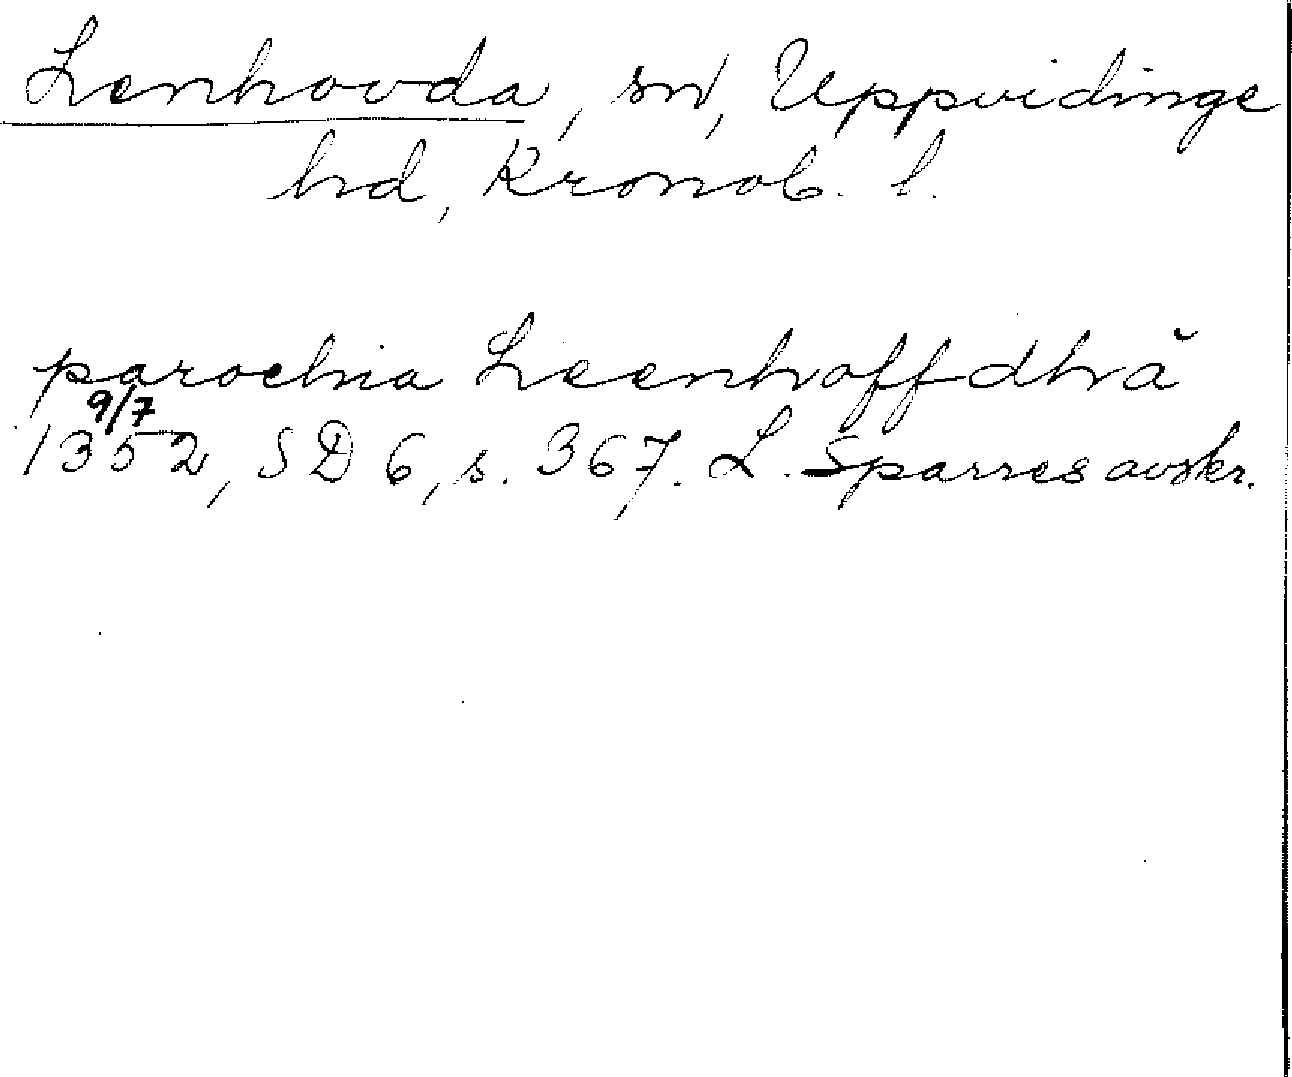 Lenhovda, sn, Uppvidinge
hd, Kronob. l.
parochia Leenhoffdhă
9/7
1352, SD 6, s. 367. L. Sparres avskr.